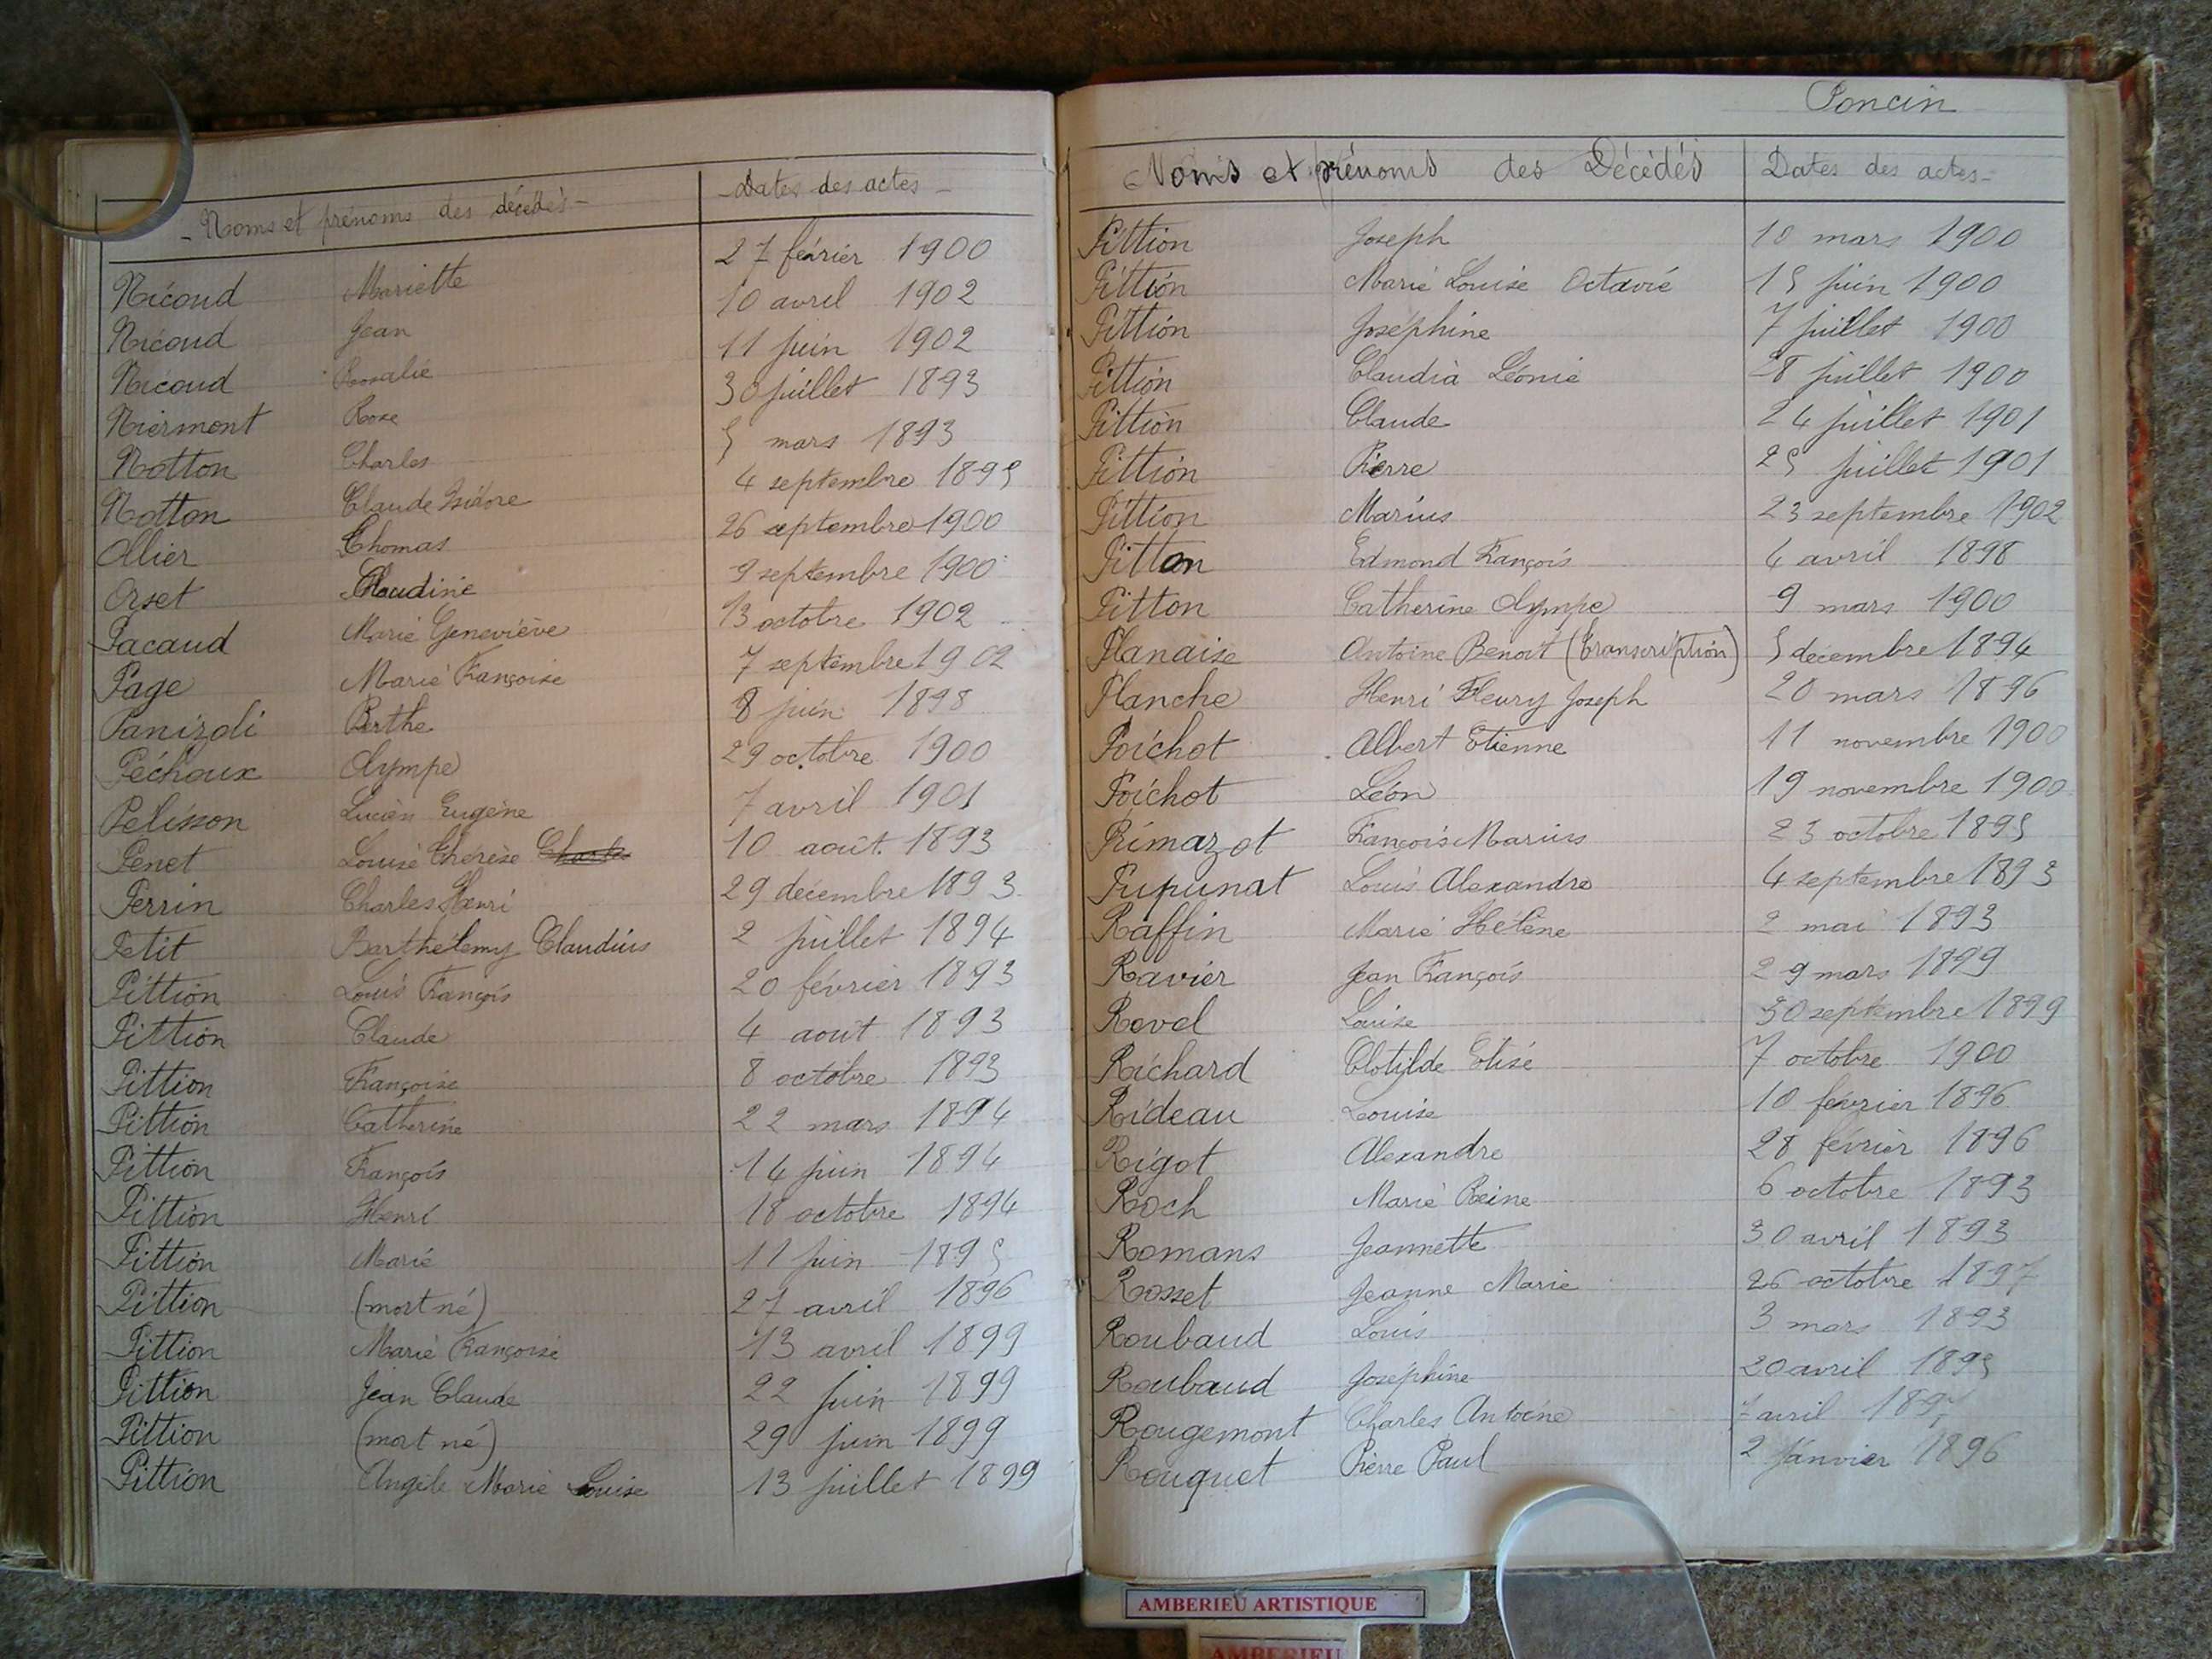 Noms et prénoms des décédés - Dates des actes -
Nicoud Mariette 27 février 1900
Nicoud Jean 10 avril 1902
Nicoud Rosalie 11 juin 1902
Niermont Rose 30 juillet 1893
Notton Charles 5 mars 1893
Notton Claude Isidore 4 septembre 1895
Ollier Thomas 26 septembre 1900
Orset Claudine 9 septembre 1900
Pacaud Marie Geneviève 13 octobre 1902
Page Marie Françoise 7 septembre 1902
Panizoli Berthe 8 juin 1898
Péchoux Olympe 29 octobre 1900
Pélisson Lucien Eugène 7 avril 1901
Penet Louise Thérèse 10 août 1893
Perrin Charles Henri 29 décembre 1893
Petit Barthélemy Claudius 2 juillet 1894
Pittion Louis François 20 février 1893
Pittion Claude 4 août 1893
Pittion Françoise 8 octobre 1893
Pittion Catherine 22 mars 1894
Pittion François 14 juin 1894
Pittion Henri 18 octobre 1894
Pittion Marie 11 juin 1895
Pittion (mort né) 27 avril 1896
Pittion Marie Françoise 13 avril 1899
Pittion Jean Claude 22 juin 1899
Pittion (mort né) 29 juin 1899
Pittion Angèle Marie Louise 13 juillet 1899
Poncin
Noms et prénoms des Décédés Dates des actes -
Pittion Joseph 10 mars 1900
Pittion Marie Louise Octavie 15 juin 1900
Pittion Joséphine 7 juillet 1900
Pittion Claudia Léonie 28 juillet 1900
Pittion Claude 24 juillet 1901
Pittion Pierre 25 juillet 1901
Pittion Marius 23 septembre 1902
Pitton Edmond François 4 avril 1898
Pitton Catherine Olympe 9 mars 1900
Planaise Antoine Benoit (Transcription) 5 décembre 1894
Planche Henri Fleury Joseph 20 mars 1896
Poichot Albert Etienne 11 novembre 1900
Poichot Léon 19 novembre 1900
Primazot François Marius 23 octobre 1895
Pupunat Louis Alexandre 4 septembre 1893
Raffin Marie Hélène 2 mai 1893
Ravier Jean François 29 mars 1899
Revel Louise 30 septembre 1899
Richard Clotilde Elise 7 octobre 1900
Rideau Louise 10 février 1896
Rigot Alexandre 28 février 1896
Roch Marie Reine 6 octobre 1893
Romans Jeannette 30 avril 1893
Rosset Jeanne Marie 26 octobre 1897
Roubaud Louis 3 mars 1893
Roubaud Joséphine 20 avril 1895
Rougemont Charles Antoine avril
Rouquet Pierre Paul 2 janvier 1896
AMBERIEU ARTISTIQUE
AMBERIEU